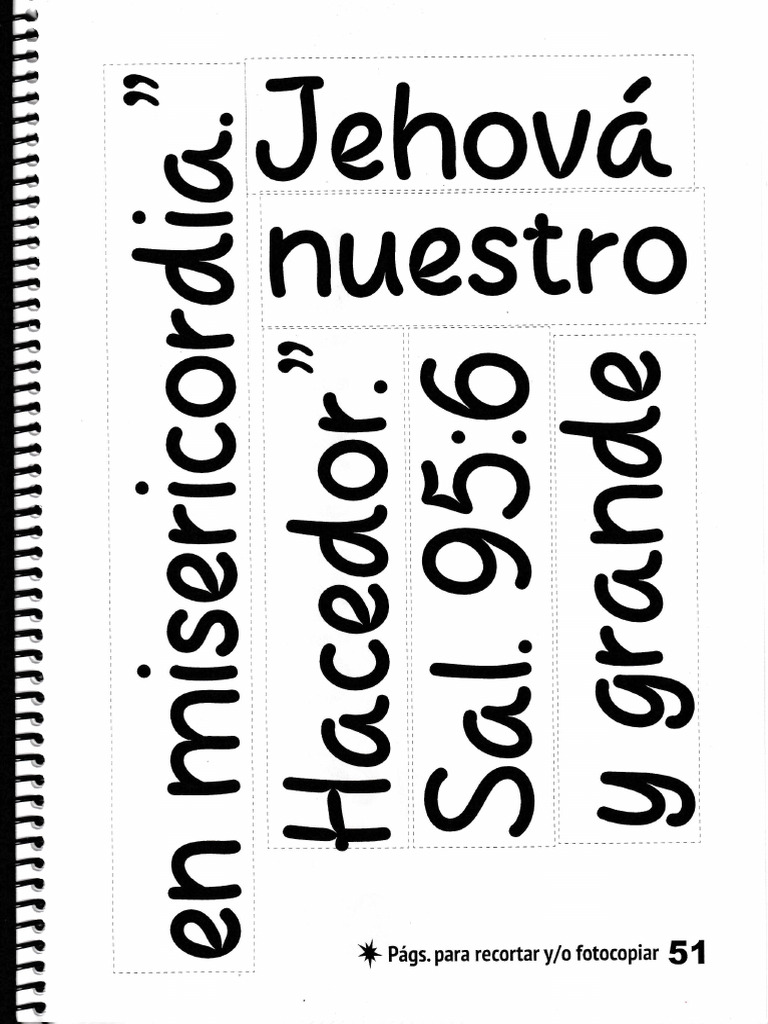 Jehová
nuestro
en misericordia.”
Hacedor.”
Sal. 95:6
y grande
Págs. para recortar y/o fotocopiar 51